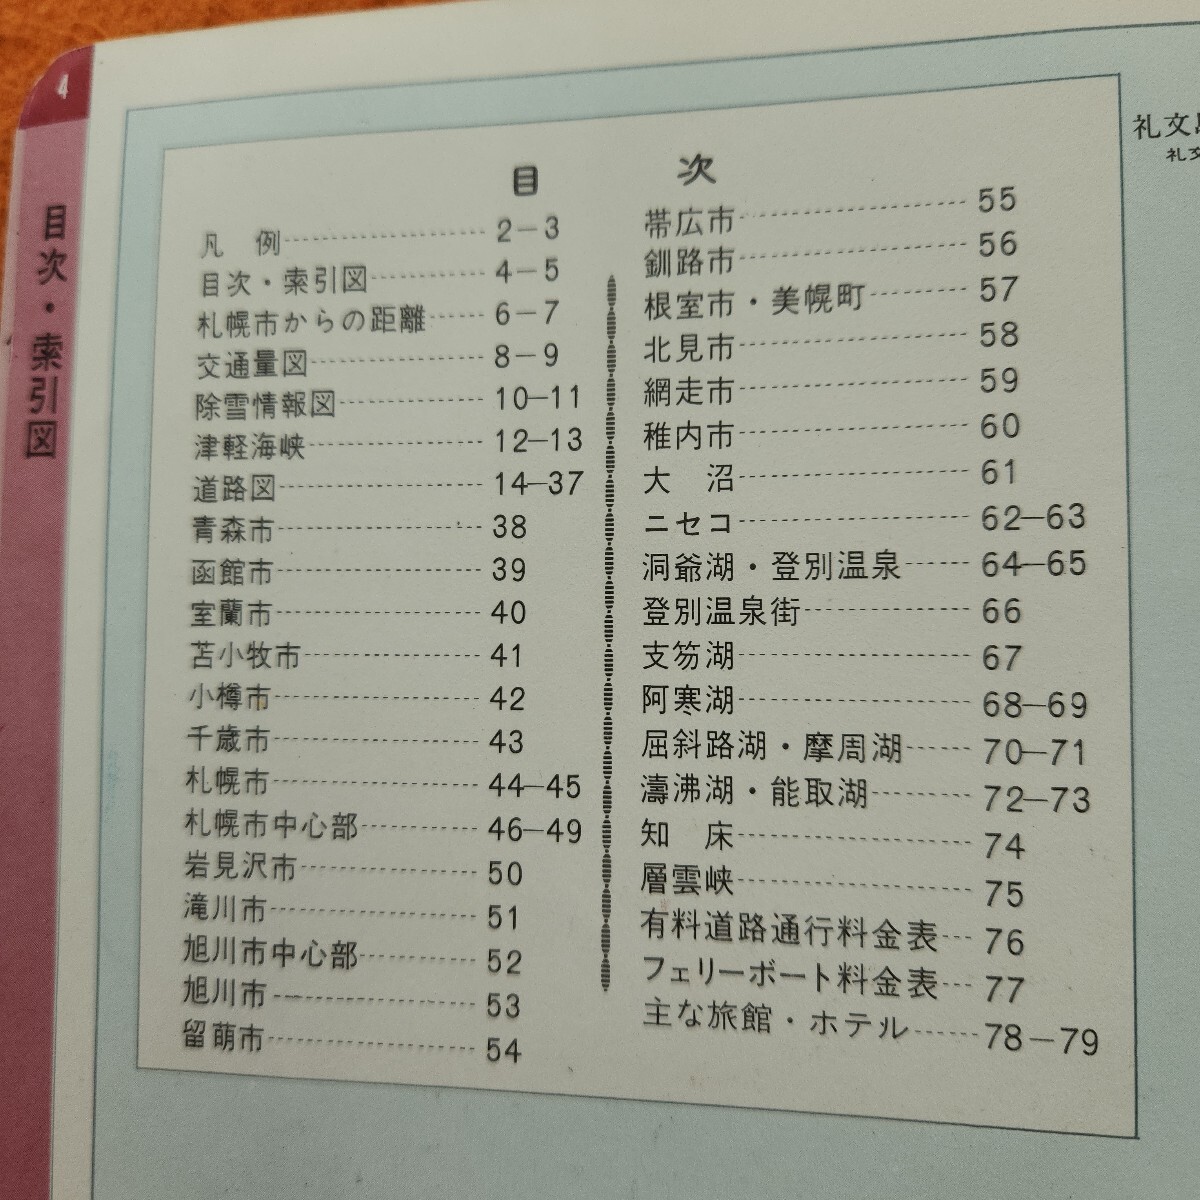 4
目次・索引図
目次
凡 例 2-3
目次・索引図 4-5
札幌市からの距離 6-7
交通量図 8-9
除雪情報図 10-11
津軽海峡 12-13
道路図 14-37
青森市 38
函館市 39
室蘭市 40
苫小牧市 41
小樽市 42
千歳市 43
札幌市 44-45
札幌市中心部 46-49
岩見沢市 50
滝川市 51
旭川市中心部 52
旭川市 53
留萌市 54
帯広市 55
釧路市 56
根室市・美幌町 57
北見市 58
網走市 59
稚内市 60
大 沼 61
ニセコ 62-63
洞爺湖・登別温泉 64-65
登別温泉街 66
支笏湖 67
阿寒湖 68-69
屈斜路湖・摩周湖 70-71
濤沸湖・能取湖 72-73
知 床 74
層雲峡 75
有料道路通行料金表 76
フェリーボート料金表 77
主な旅館・ホテル 78-79
礼文
礼文